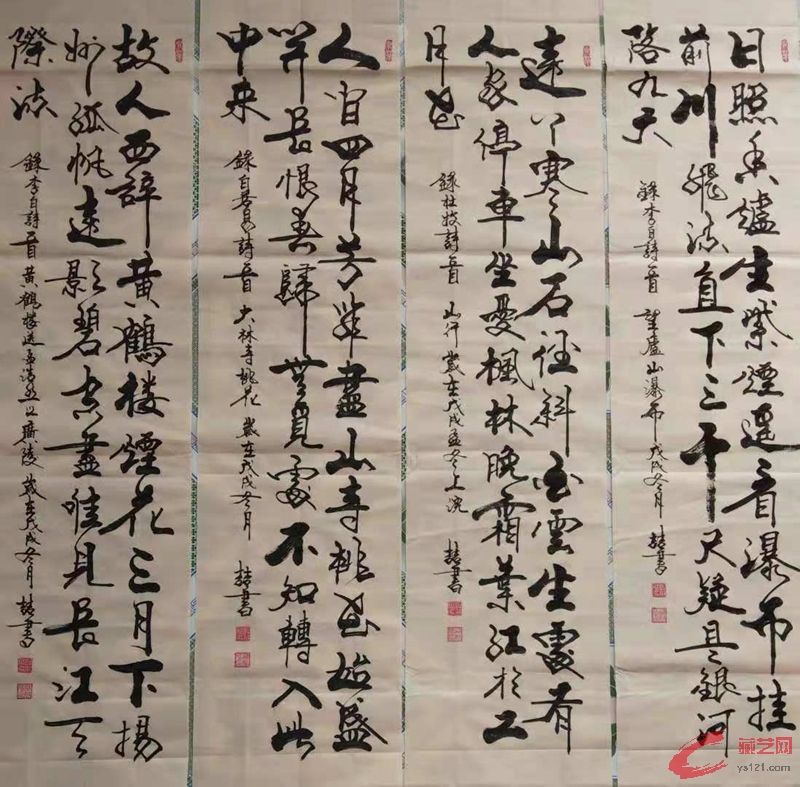 日照香爐生紫煙遥看瀑布挂
前川飛流直下三千尺疑是銀河
落九天
錄李白詩一首 望廬山瀑布 戊戌冬月 書
遠上寒山石径斜白雲生處有
人家停車坐愛楓林晚霜葉红於二
月花
錄杜牧詩一首 山行 歲在戊戌孟冬上浣 書
人间四月芳菲盡山寺桃花始盛
开長恨春歸無覓處不知轉入此
中来
錄白居易詩一首 大林寺桃花 歲在戊戌冬月 書
故人西辞黄鶴楼煙花三月下揚
州孤帆遠影碧空盡唯見長江天
際流
錄李白詩一首 黄鶴楼送孟浩然之廣陵 歲在戊戌冬月 書
藏艺网
ys121.com